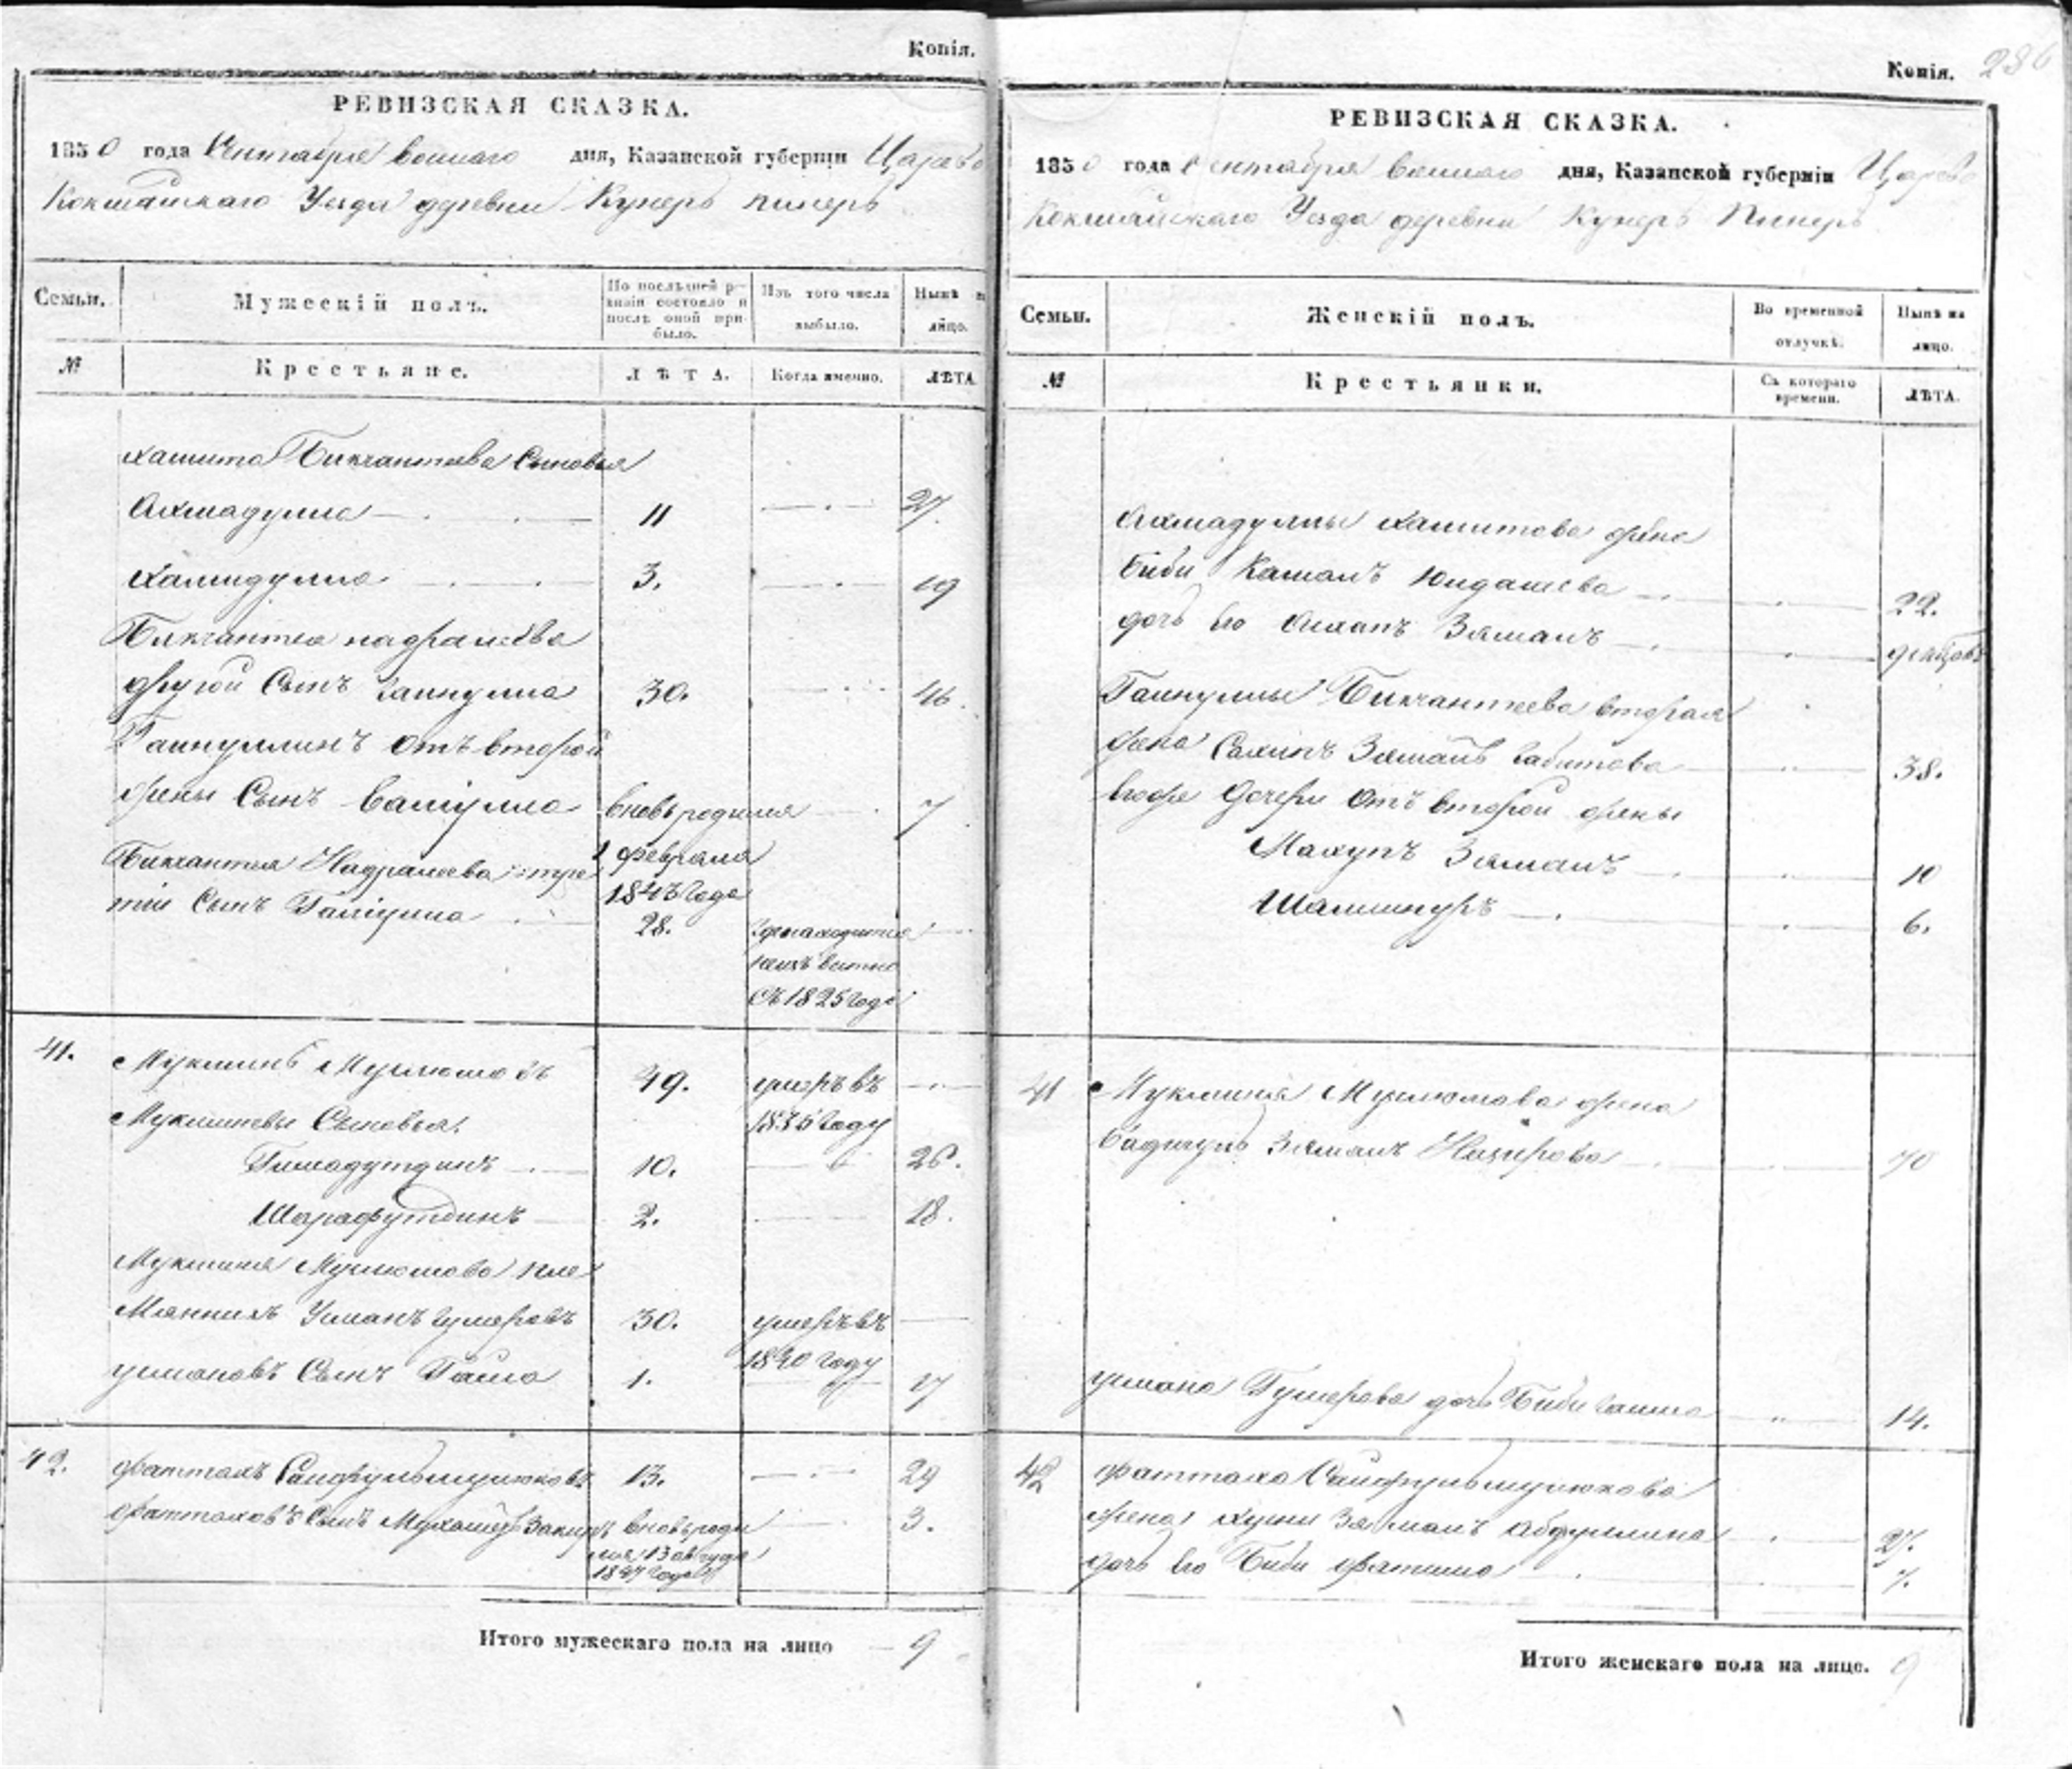 Копія.
РЕВИЗСКАЯ СКАЗКА.
1850 года Сентября дня, Казанской губерніи Царево
Кокшайскаго Уезда деревни Кунеръ пинеръ
Семьи.
Мужескій полъ.
По последней ре-
визіи состояло и
после оной при-
было.
Изъ того числа
выбыло.
Ныне на
лицо.
№
Крестьяне.
ЛѢТА.
Когда именно.
ЛѢТА.
хашита Бикчантаева Сыновья
Ахмадулла 11 27.
Халидулла 3. 19
Бикчантея надралеева
другой Сынъ Гайнулла 30. 46.
Гайнуллинъ отъ второй
жены Сынъ Валіулла вновь родился 7
Бикчантея Надралеева тре
1 февраля
1843 года
тій Сынъ Галіулла 28.
съ 1825 года
41. Мукминъ Муслюмовъ 49. умеръ въ
Мукминевы Сыновья. 1835 году
Гимадутдинъ 10. 26.
Шарафутдинъ 2. 18.
Мукминя Муслюмова пле
мянникъ Усманъ гумеровъ 30. умеръ въ
1840 году
усмановъ Сынъ Гайса 1. 17
42. фаттахъ Сайфульмулюковъ 13. 29
фаттаховъ Сынъ Мухамедъ Закиръ вновь роди 3.
лся 13 августа
1847 года
Итого мужескаго пола на лицо 9
Копія. 286
РЕВИЗСКАЯ СКАЗКА.
1850 года Сентября дня, Казанской губерніи Царево
Кокшайскаго Уезда деревни Кунеръ Пинеръ
Семьи.
Женскій полъ.
Во временной
отлучкѣ.
Нынѣ на
лицо.
№
Крестьянки.
Съ котораго
времени.
ЛѢТА.
Ахмадуллы хашитова жена
Биби Камалъ Юлдашева 22.
дочь его Зямалъ
Гайнуллы Бикчантеева вторая
жена Зямалъ Сабитова 38.
Егоже дочери отъ второй жены
Махупъ Зямалъ 10
Шамсинуръ 6.
41 Мукминя Муслюмова жена
Бадигулъ Зямалъ Назирова 40
усмана Гумерова дочь Биби Гайша 14.
42 фаттаха Сайфульмулюкова
жена хусни Зямалъ абдуллина 27.
дочь его Биби фатима 7.
Итого женскаго пола на лице. 9